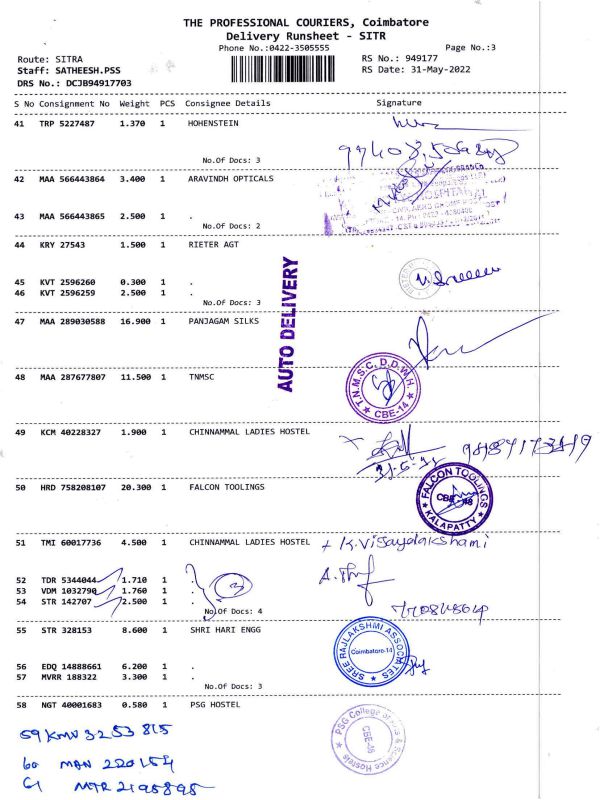 THE PROFESSIONAL COURIERS, Coimbatore
Delivery Runsheet - SITR
Phone No.:0422-3505555
Page No.:3
Route: SITRA
RS No.: 949177
Staff: SATHEESH.PSS
RS Date: 31-May-2022
DRS No.: DCJB94917703
S No Consignment No Weight PCS Consignee Details Signature
41 TRP 5227487 1.370 1 HOHENSTEIN
No.Of Docs: 3
42 MAA 566443864 3.400 1 ARAVINDH OPTICALS
43 MAA 566443865 2.500 1 .
No.Of Docs: 2
44 KRY 27543 1.500 1 RIETER AGT
45 KVT 2596260 0.300 1 .
46 KVT 2596259 2.500 1 .
No.Of Docs: 3
AUTO DELIVERY
47 MAA 289030588 16.900 1 PANJAGAM SILKS
48 MAA 287677807 11.500 1 TNMSC
T.N.M.S.C, D.D.W.H. CBE-14
49 KCM 40228327 1.900 1 CHINNAMMAL LADIES HOSTEL
50 HRD 758208107 20.300 1 FALCON TOOLINGS
FALCON TOOLINGS KALAPATTY
51 TMI 60017736 4.500 1 CHINNAMMAL LADIES HOSTEL
K.Vijayalakshami
52 TDR 5344044 1.710 1 .
53 VDM 1032790 1.760 1 .
54 STR 142707 2.500 1 .
3
No.Of Docs: 4
55 STR 328153 8.600 1 SHRI HARI ENGG
SREE RAJLAKSHMI ASSOCIATES Coimbatore-14
56 EDQ 14888661 6.200 1 .
57 MVRR 188322 3.300 1 .
No.Of Docs: 3
58 NGT 40001683 0.580 1 PSG HOSTEL
PSG College of Arts & Science Hostels
59 KMU 3253815
60 MAN 220154
61 MTR 2195895